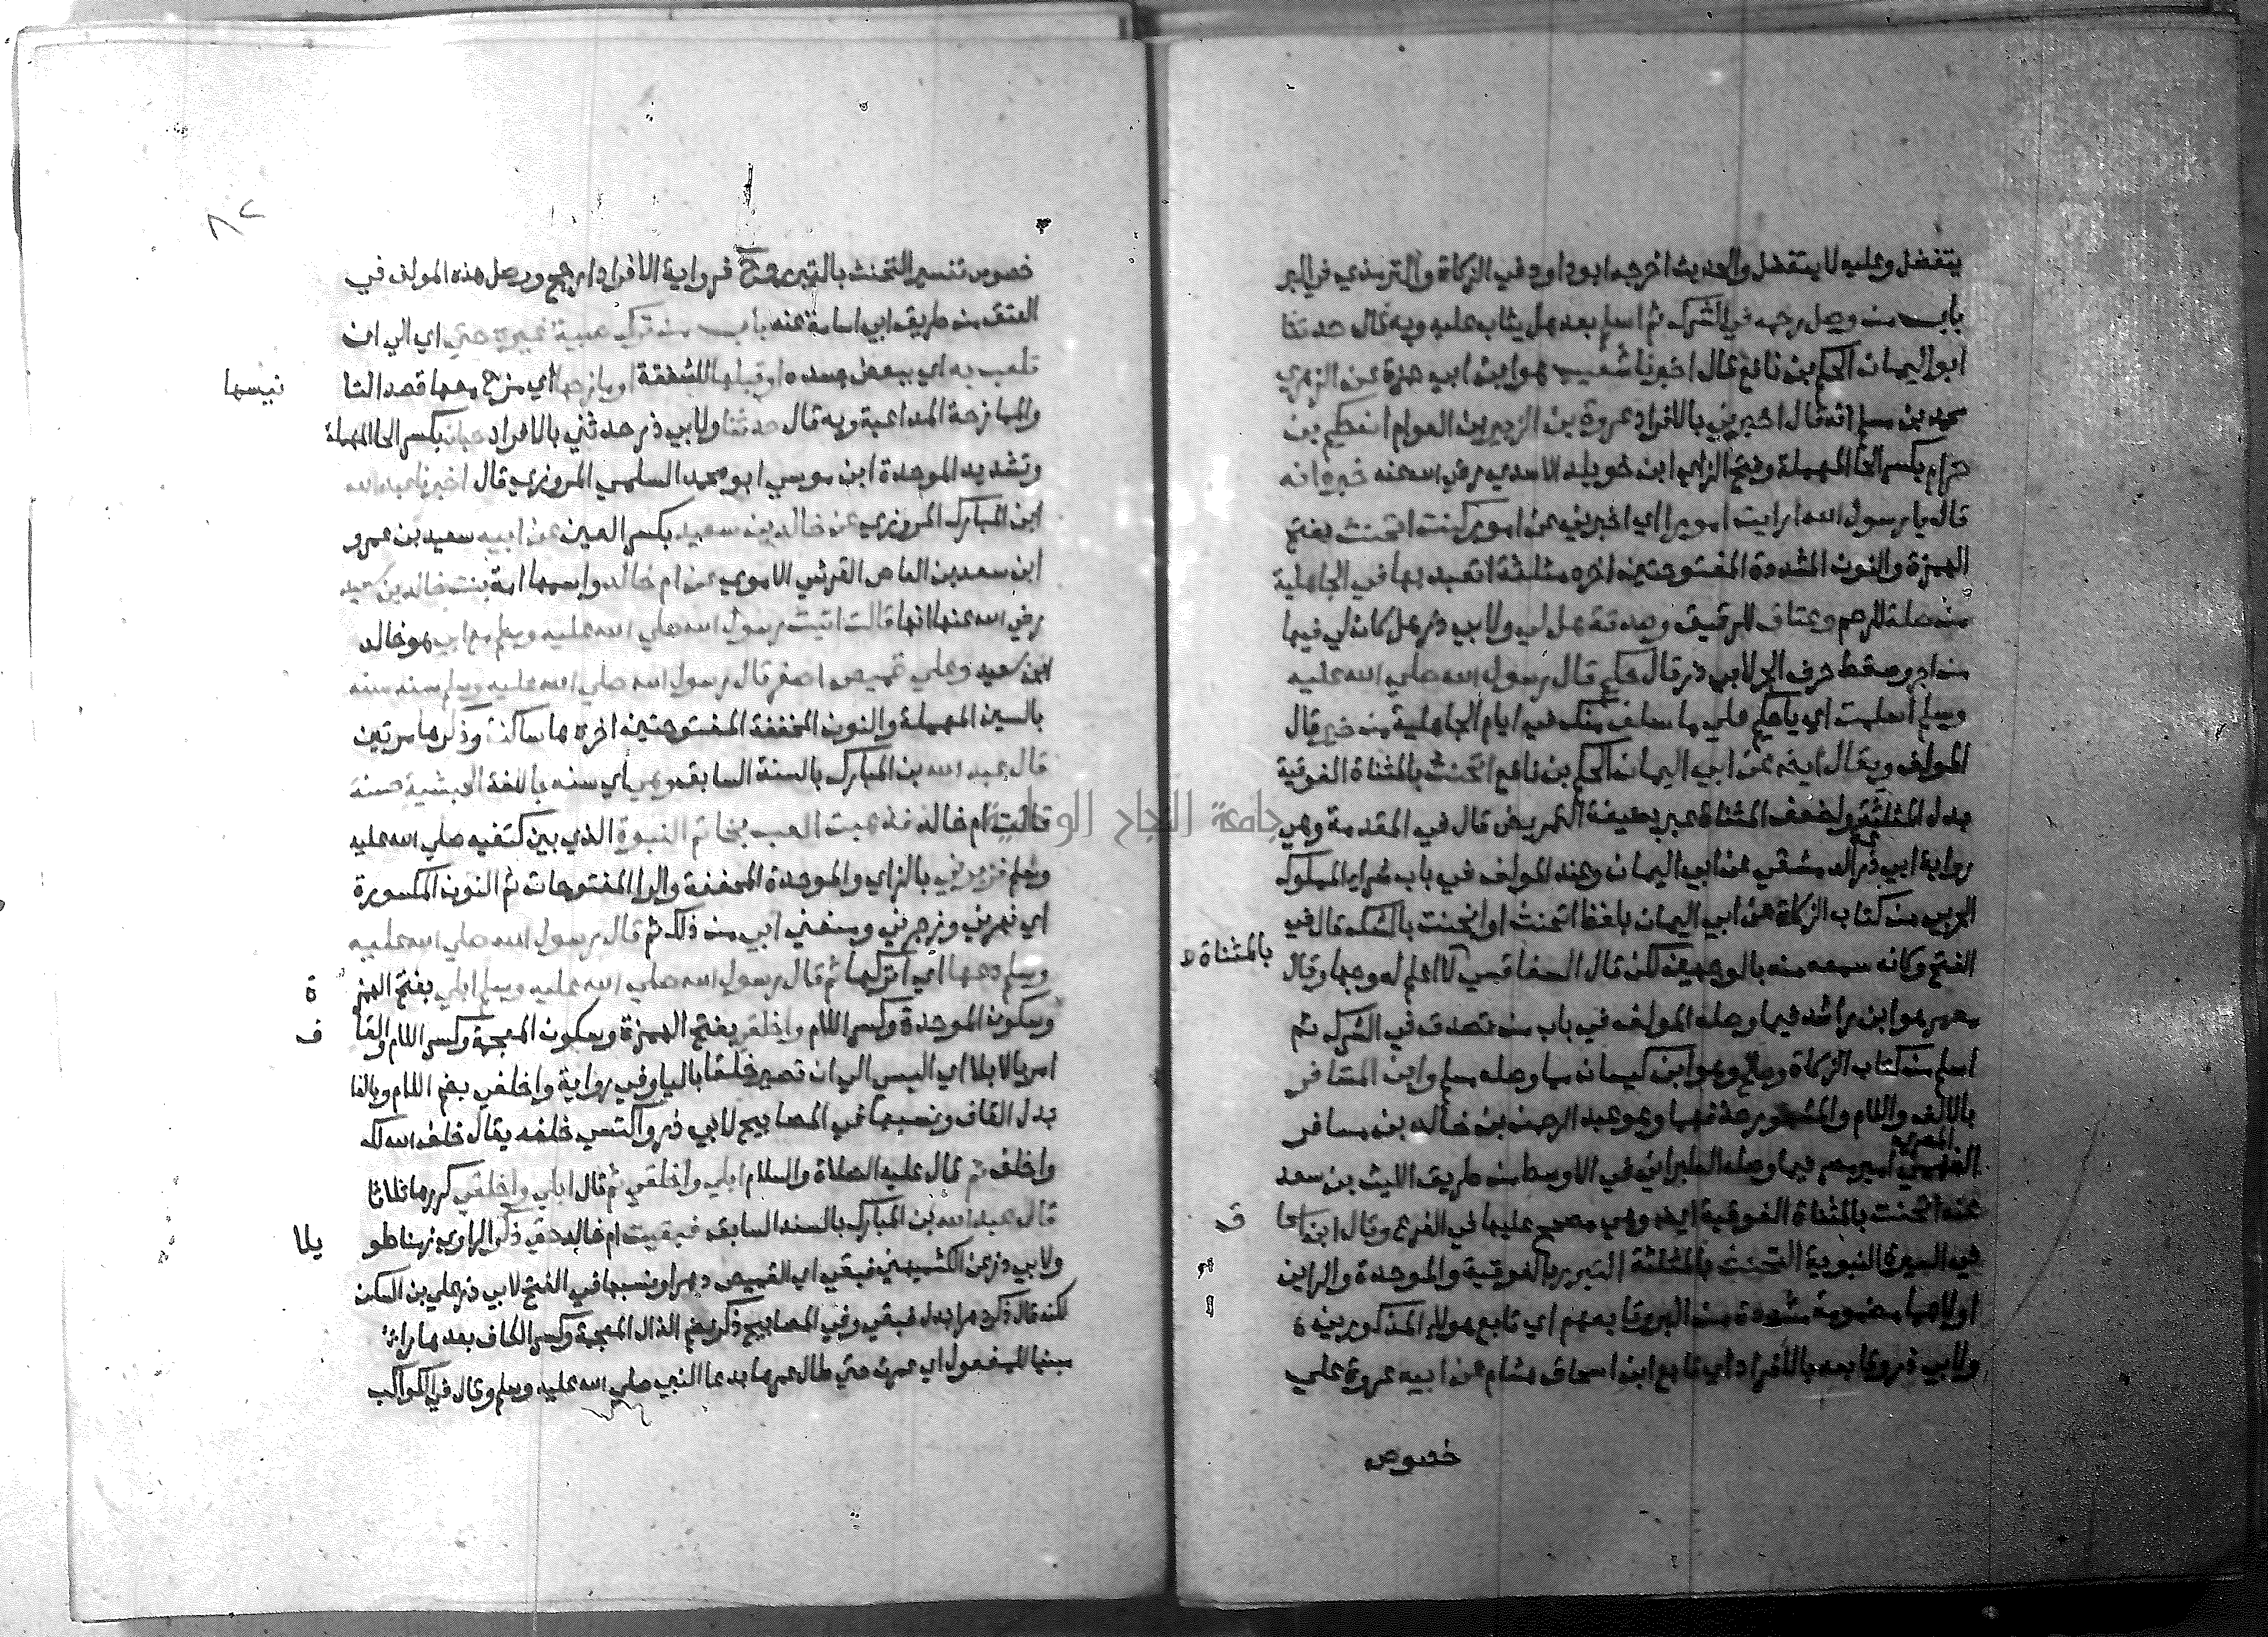 يتفضل وعليه لا يتفضل والحديث اخرجه ابو داود في الزكاة والترمذي في البر
باب من وصل رحمه في الشرك ثم اسلم بعد هل يثاب عليه وبه قال حدثنا
ابو اليمان الحكم بن نافع قال اخبرنا شعيب هو ابن ابي حمزة عن الزهري
محمد بن مسلم انه قال اخبرني بالافراد عروة بن الزبير بن العوام ان حكيم بن
حزام بكسر الحا المهملة وفتح الزاي ابن خويلد الاسدي رضي الله عنه خبره انه
قال يا رسول الله ارايت امورا اي اخبرني عن امور كنت اتحنث بفتح
الهمزة والنون المشددة المفتوحتين اخره مثلثة اتعبد بها في الجاهلية
من صلة للرحم وعتاق للرقيق وصدقة هل لي ولابي ذر هل كان لي فيها
من اجر وسقط حرف الجر لابي ذر قال حكيم قال رسول الله صلي الله عليه
وسلم اسلمت اي يا حكيم علي ما سلف منك في ايام الجاهلية من خير قال
المولف ويقال ايضه عن ابي اليمان الحكم بن نافع اتحنت بالمثناة الفوقية
بدل المثلثة ولضعف المثناة عبر بصيغة التمريض قال في المقدمة وهي
رواية ابي ذر الدمشقي عن ابي اليمان وعند المولف في باب شراء المملوك
الحربي من كتاب الزكاة عن ابي اليمان بلفظ اتحنث او اتحنت بالشك قال في
الفتح وكانه سمعه منه بالوجهين لكن قال السفاقسي لا اعلم له وجها وقال بالمثناة
معمر هو ابن راشد فيما وصله المولف في باب من تصدق في الشرك ثم
اسلم من كتاب الزكاة وصالح وهو ابن كيسان مما وصله مسلم وابن المسافر
بالالف واللام والمشهور حذفهما وهو عبد الرحمن بن خالد بن مسافر
الفهمي المصري امير مصر فيما وصله الطبراني في الاوسط من طريق الليث بن سعد
عنه اتحنت بالمثناة الفوقية ايضه وهي مصحح عليها في الفرع وقال ابن اسحا ق
في السيرة النبوية التحنث بالمثلثة التبرر بالفوقية والموحدة والراين
اولاهما مضمومة مشددة من البر وتابعهم اي تابع هولاء المذكورين
ولابي ذر وتابعه بالافراد اي تابع ابن اسحاق هشام عن ابيه عروة علي
خصوص
خصوص تفسير التحنث بالتبرر فرواية الافراد ارجح ووصل هذه المولف في
العتق من طريق ابي اسامة عنه باب من ترك صبية غيره حتي اي الي ان
تلعب به اي ببعض جسده او قبلها للشفقة او مازحها اي مزح معها قصد التا نيسها
والممازحة المداعبة وبه قال حدثنا ولابي ذر حدثني بالافراد حبان بكسر الحا المهملة
وتشديد الموحدة ابن موسي ابو محمد السلمي المروزي قال اخبرنا عبد الله
ابن المبارك المروزي عن خالد بن سعيد بكسر العين عن ابيه سعيد بن عمرو
ابن سعد بن العاص القرشي الاموي عن ام خالد واسمها امة بنت خالد بن سعيد
رضي الله عنها انها قالت اتيت رسول الله صلي الله عليه وسلم مع ابي هو خالد
ابن سعيد وعلي قميص اصفر قال رسول الله صلي الله عليه وسلم سنه سنه
بالسين المهملة والنون المخففة المفتوحتين اخره ها ساكنة وذكرها مرتين
قال عبد الله بن المبارك بالسند السابق وهي اي سنه باللغة الحبشية حسنة
قالت ام خالد فذهبت العب بخاتم النبوة الذي بين كتفيه صلي الله عليه
وسلم فزبرني بالزاي والموحدة المخففة والرا المفتوحات ثم النون المكسورة
اي نهرني وزجرني ومنعني ابي من ذلك ثم قال رسول الله صلي الله عليه
وسلم دعها اي اتركها ثم قال رسول الله صلي الله عليه وسلم ابلي بفتح الهمز ة
وسكون الموحدة وكسر اللام واخلقي بفتح الهمزة وسكون المعجمة وكسر اللام والقا ف
امر بالابلا اي البس الي ان تصير خلقا باليا وفي رواية واخلفي بضم اللام وبالفا
بدل القاف ونسبها في المصابيح لابي ذر واكتسي خلفه يقال خلف الله لك
واخلف ثم قال عليه الصلاة والسلام ابلي واخلقي ثم قال ابلي واخلقي كررها ثلاثا
قال عبد الله بن المبارك بالسند السابق فبقيت ام خالد حتي ذكر الراوي زمنا طو يلا
ولابي ذر عن الكشميهني فبقي اي القميص دهرا ونسبها في الفتح لابي ذر علي بن السكن
لكنه قال ذكر دهرا بدل فبقي وفي المصابيح ذكر بضم الذال المعجمة وكسر الكاف بعدها را
مبنيا للمفعول اي عمرت حتي طال عمرها بدعا النبي صلي الله عليه وسلم وقال في الكواكب